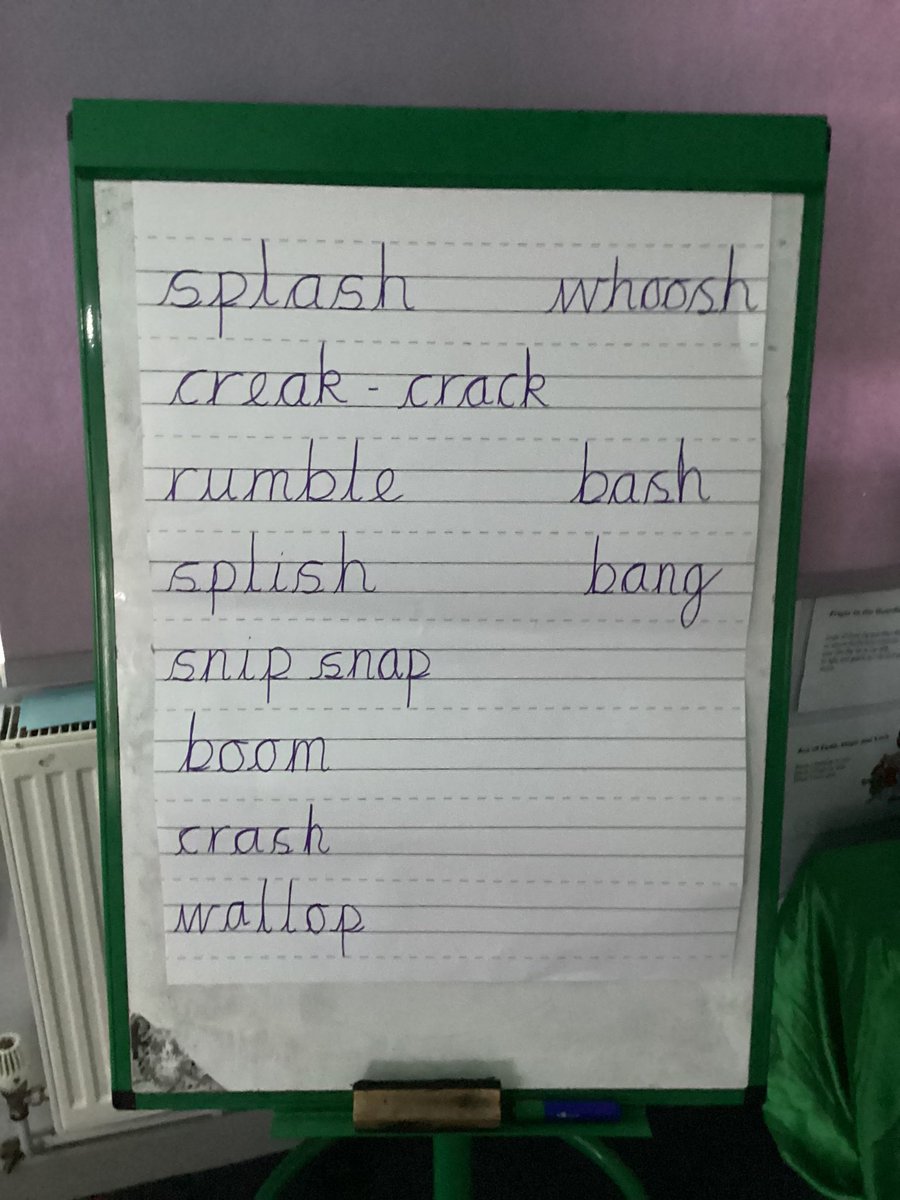 splash whoosh
creak - crack
rumble bash
splish bang
snip snap
boom
crash
wallop